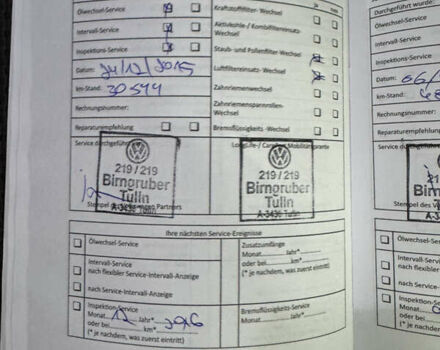 Ölwechsel-Service
Intervall-Service
Inspektions-Service
Datum: 24/12/2015
km-Stand: 30544
Rechnungsnummer:
Reparaturempfehlung
Service durchgeführt
Kraftstofffilter-Wechsel
Aktivkohle-/Kombifiltereinsatz-
Wechsel
Staub- und Pollenfilter-Wechsel
Luftfiltereinsatz-Wechsel
Zahnriemenwechsel
Zahnriemenspannrollen-
Wechsel
Bremsflüssigkeits-Wechsel
LongLife-/ Mobilitätsgarantie
219 / 219
Birngruber
Tulln
A-3430 Tulln
Stempel des Partners
219 / 219
Birngruber
Tulln
A-3430 Tulln
Ihre nächsten Service-Ereignisse
Ölwechsel-Service
Intervall-Service
nach flexibler Service-Intervall-Anzeige
nach Service-Intervall-Anzeige
Inspektion-Service
Monat 12 Jahr* 2016
oder bei km*
(* je nachdem, was zuerst eintritt)
Zusatzumfänge
Monat Jahr*
oder bei km*
(* je nachdem, was zuerst eintritt)
Bremsflüssigkeits-Service
Monat Jahr
Durchgeführt wurde:
Ölwechsel-Service
Intervall-Service
Inspektions-Service
Datum: 06/
km-Stand:
Rechnungsnummer:
Reparaturempfehlung
Service durchgeführt
219
Birng
Tul
A-3430
Stempel des V
Ölwechsel-Se
Intervall-Serv
nach flexible
nach Service
Inspektion-S
Monat
oder bei
(* je nachd